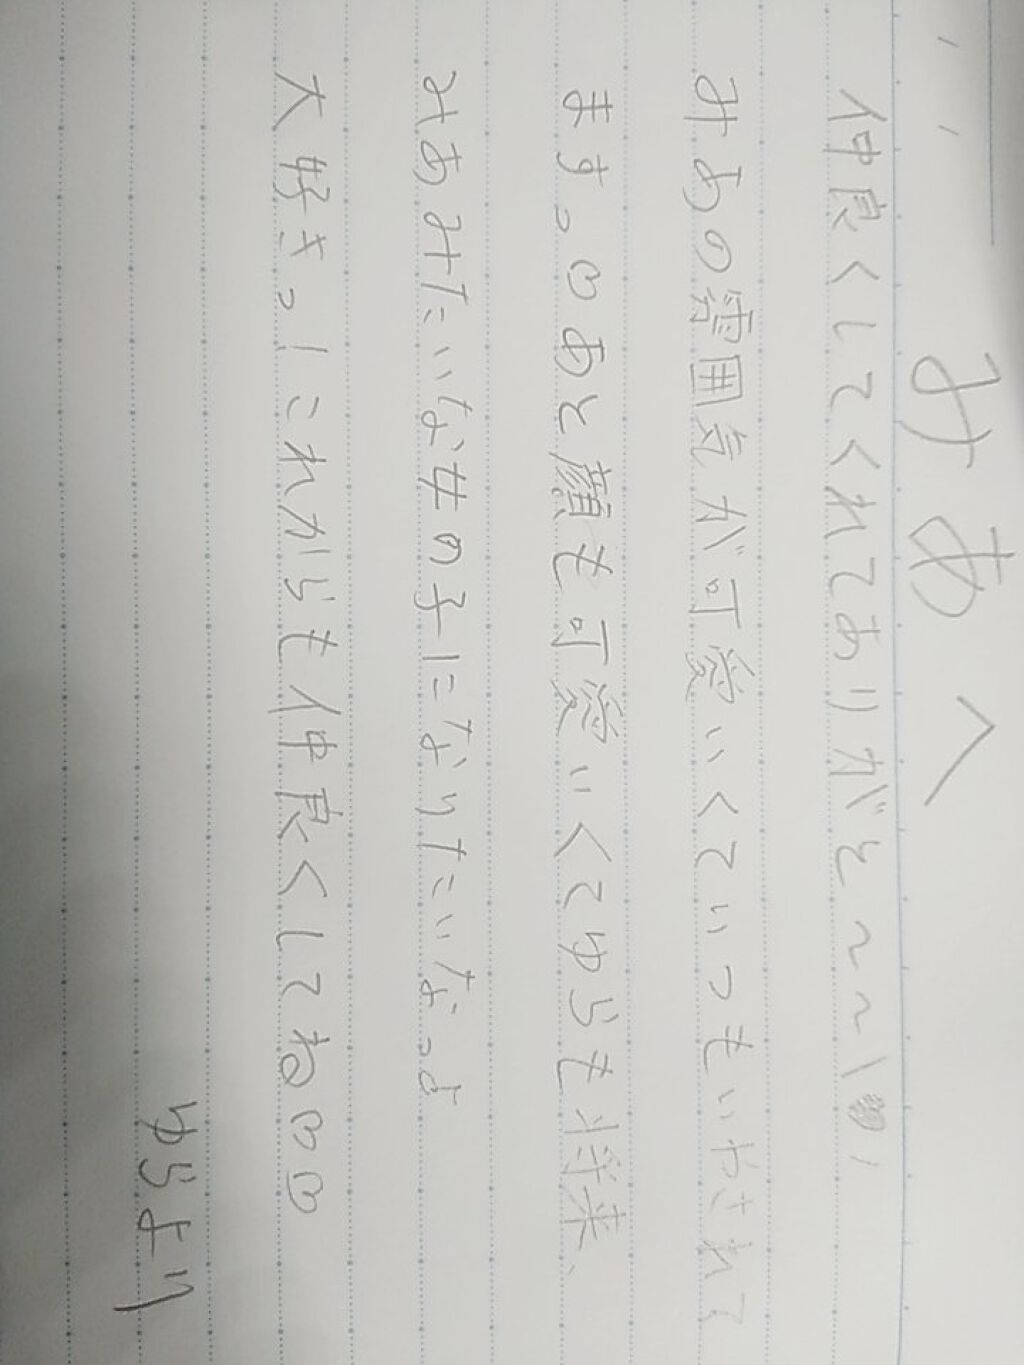 みあへ
仲良くしてくれてありがと〜〜！♥！
みあの雰囲気が可愛いくていついもいやされて
ます。♡あと顔も可愛いくてゆらも将来、
みあみたいな女の子になりたいなっよ
大好きっ！これからも仲良くしてね♡♡
ゆらより